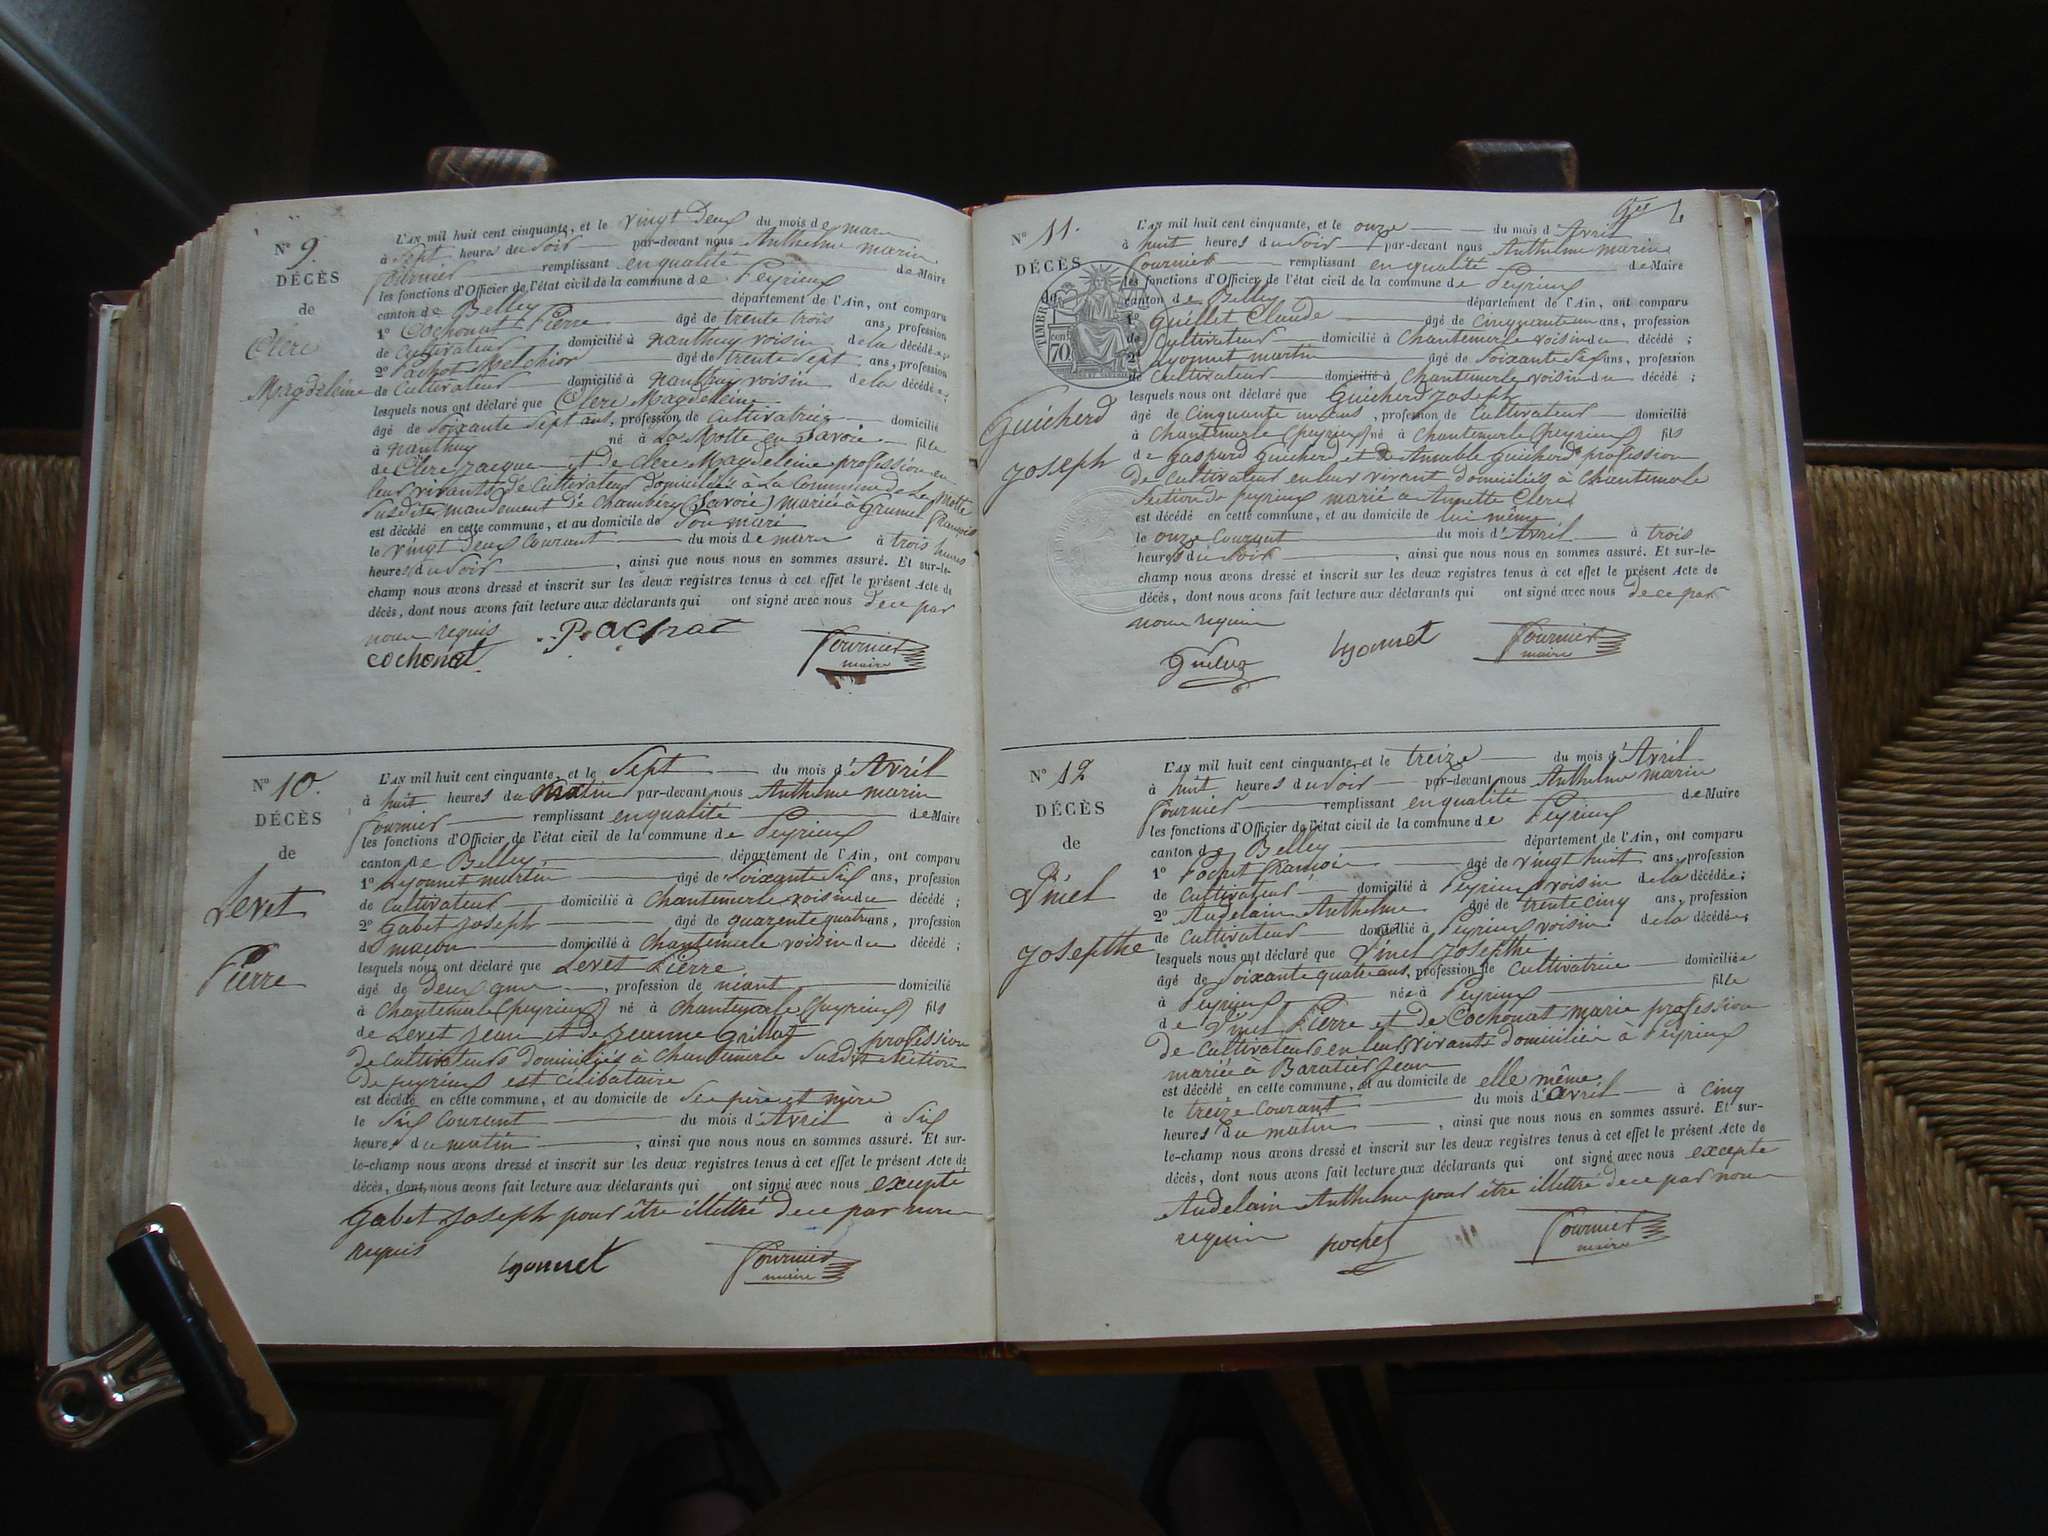 N° 9.
DÉCÈS
de
Clerc
Magdeleine
L'AN mil huit cent cinquante, et le vingt deux du mois de mars
à sept heures du soir par-devant nous Anthelme marin
fournier remplissant en qualité de Maire
les fonctions d'Officier de l'état civil de la commune de Peyrieux
canton de Belley département de l'Ain, ont comparu
1° Cochonat Pierre âgé de trente trois ans, profession
de Cultivateur domicilié à nanthuy voisin de la décédée;
2° Pachot Melchior âgé de trente sept ans, profession
de Cultivateur domicilié à nanthuy voisin de la décédée;
lesquels nous ont déclaré que Clerc Magdeleine
âgé de soixante sept ans, profession de Cultivatrice domicilié
à nanthuy né à La Motte en Savoie fille
de Clerc jacque et de Clerc Magdeleine profession en
leur vivants de Cultivateur domiciliés à La Commune de La Motte
susdite mandement de Chambéry (Savoie) mariée à Grumel françois
est décédé en cette commune, et au domicile de Son mari
le vingt deux courant du mois de mars à trois heures
heures du soir, ainsi que nous nous en sommes assuré. Et sur-le-
champ nous avons dressé et inscrit sur les deux registres tenus à cet effet le présent Acte de
décès, dont nous avons fait lecture aux déclarants qui ont signé avec nous de ce par
nous requis
cochonat Pachot fournier
maire
N° 10.
DÉCÈS
de
Levet
Pierre
L'AN mil huit cent cinquante, et le Sept du mois d'Avril
à huit heures du matin par-devant nous Anthelme marin
fournier remplissant en qualité de Maire
les fonctions d'Officier de l'état civil de la commune de Peyrieux
canton de Belley département de l'Ain, ont comparu
1° Lyonnet martin âgé de soixante six ans, profession
de Cultivateur domicilié à Chantemerle voisin du décédé;
2° Gabet joseph âgé de quarente quatre ans, profession
de maçon domicilié à Chantemerle voisin du décédé;
lesquels nous ont déclaré que Levet Pierre
âgé de deux ans, profession de néant domicilié
à Chantemerle (peyrieux) né à Chantemerle (peyrieux) fils
de Levet jean et de jeanne Grillot profession
de cultivateurs domiciliés à Chantemerle susdite section
de peyrieux est célibataire
est décédé en cette commune, et au domicile de Ses père et mère
le six courant du mois d'Avril à six
heures du matin, ainsi que nous nous en sommes assuré. Et sur-
le-champ nous avons dressé et inscrit sur les deux registres tenus à cet effet le présent Acte de
décès, dont nous avons fait lecture aux déclarants qui ont signé avec nous excepté
Gabet joseph pour être illettré de ce par nous
requis Lyonnet fournier
maire
N° 11.
DÉCÈS
de
TIMBRE
70 cent
Guicherd
joseph
L'AN mil huit cent cinquante, et le onze du mois d'Avril
à huit heures du soir par-devant nous Anthelme marin
fournier remplissant en qualité de Maire
les fonctions d'Officier de l'état civil de la commune de Peyrieux
canton de Belley département de l'Ain, ont comparu
1° Guillet Claude âgé de cinquante un ans, profession
de Cultivateur domicilié à Chantemerle voisin du décédé;
2° Lyonnet martin âgé de soixante six ans, profession
de Cultivateur domicilié à Chantemerle voisin du décédé;
lesquels nous ont déclaré que Guicherd joseph
âgé de cinquante ans, profession de Cultivateur domicilié
à Chantemerle (peyrieux) né à Chantemerle (peyrieux) fils
de gaspard guicherd et de Amable guicherd profession
de cultivateur en leur vivant domiciliés à Chantemerle
Section de peyrieux marié à Annette Clerc
est décédé en cette commune, et au domicile de lui même
le onze courant du mois d'Avril à trois
heures du soir, ainsi que nous nous en sommes assuré. Et sur-le-
champ nous avons dressé et inscrit sur les deux registres tenus à cet effet le présent Acte de
décès, dont nous avons fait lecture aux déclarants qui ont signé avec nous de ce par
nous requis
Lyonnet fournier
maire
N° 12
DÉCÈS
de
Vinel
josepthe
L'AN mil huit cent cinquante, et le treize du mois d'Avril
à huit heures du soir par-devant nous Anthelme marin
fournier remplissant en qualité de Maire
les fonctions d'Officier de l'état civil de la commune de Peyrieux
canton de Belley département de l'Ain, ont comparu
1° Pochet françois âgé de vingt huit ans, profession
de cultivateur domicilié à Peyrieux voisin de la décédée;
2° Audelain Anthelme âgé de trente cinq ans, profession
de cultivateur domicilié à Peyrieux voisin de la décédée;
lesquels nous ont déclaré que Vinel josepthe
âgé de soixante quatre ans, profession de Cultivatrice domiciliée
à Peyrieux née à Peyrieux fille
de Vinel Pierre et de Cochonat marie profession
de cultivateurs en leurs vivants domiciliés à Peyrieux
mariée à Baratier jean
est décédé en cette commune, et au domicile de elle même
le treize courant du mois d'Avril à cinq
heures du matin, ainsi que nous nous en sommes assuré. Et sur-
le-champ nous avons dressé et inscrit sur les deux registres tenus à cet effet le présent Acte de
décès, dont nous avons fait lecture aux déclarants qui ont signé avec nous excepté
Audelain Anthelme pour être illettré de ce par nous
requis pochet fournier
maire